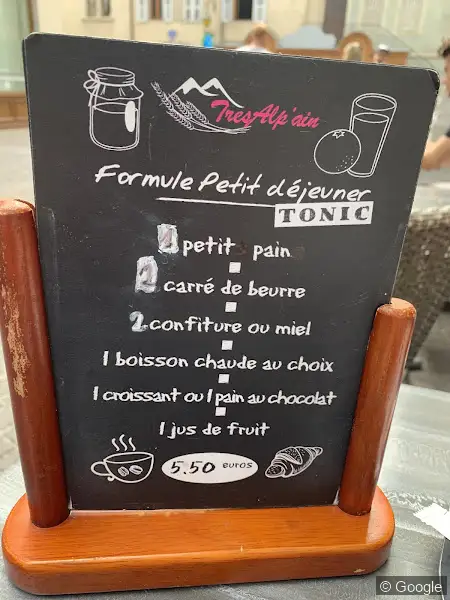 TresAlp'ain
Formule Petit déjeuner
TONIC
1 petit pain
2 carré de beurre
2 confiture ou miel
1 boisson chaude au choix
1 croissant ou 1 pain au chocolat
1 jus de fruit
5.50 euros
© Google